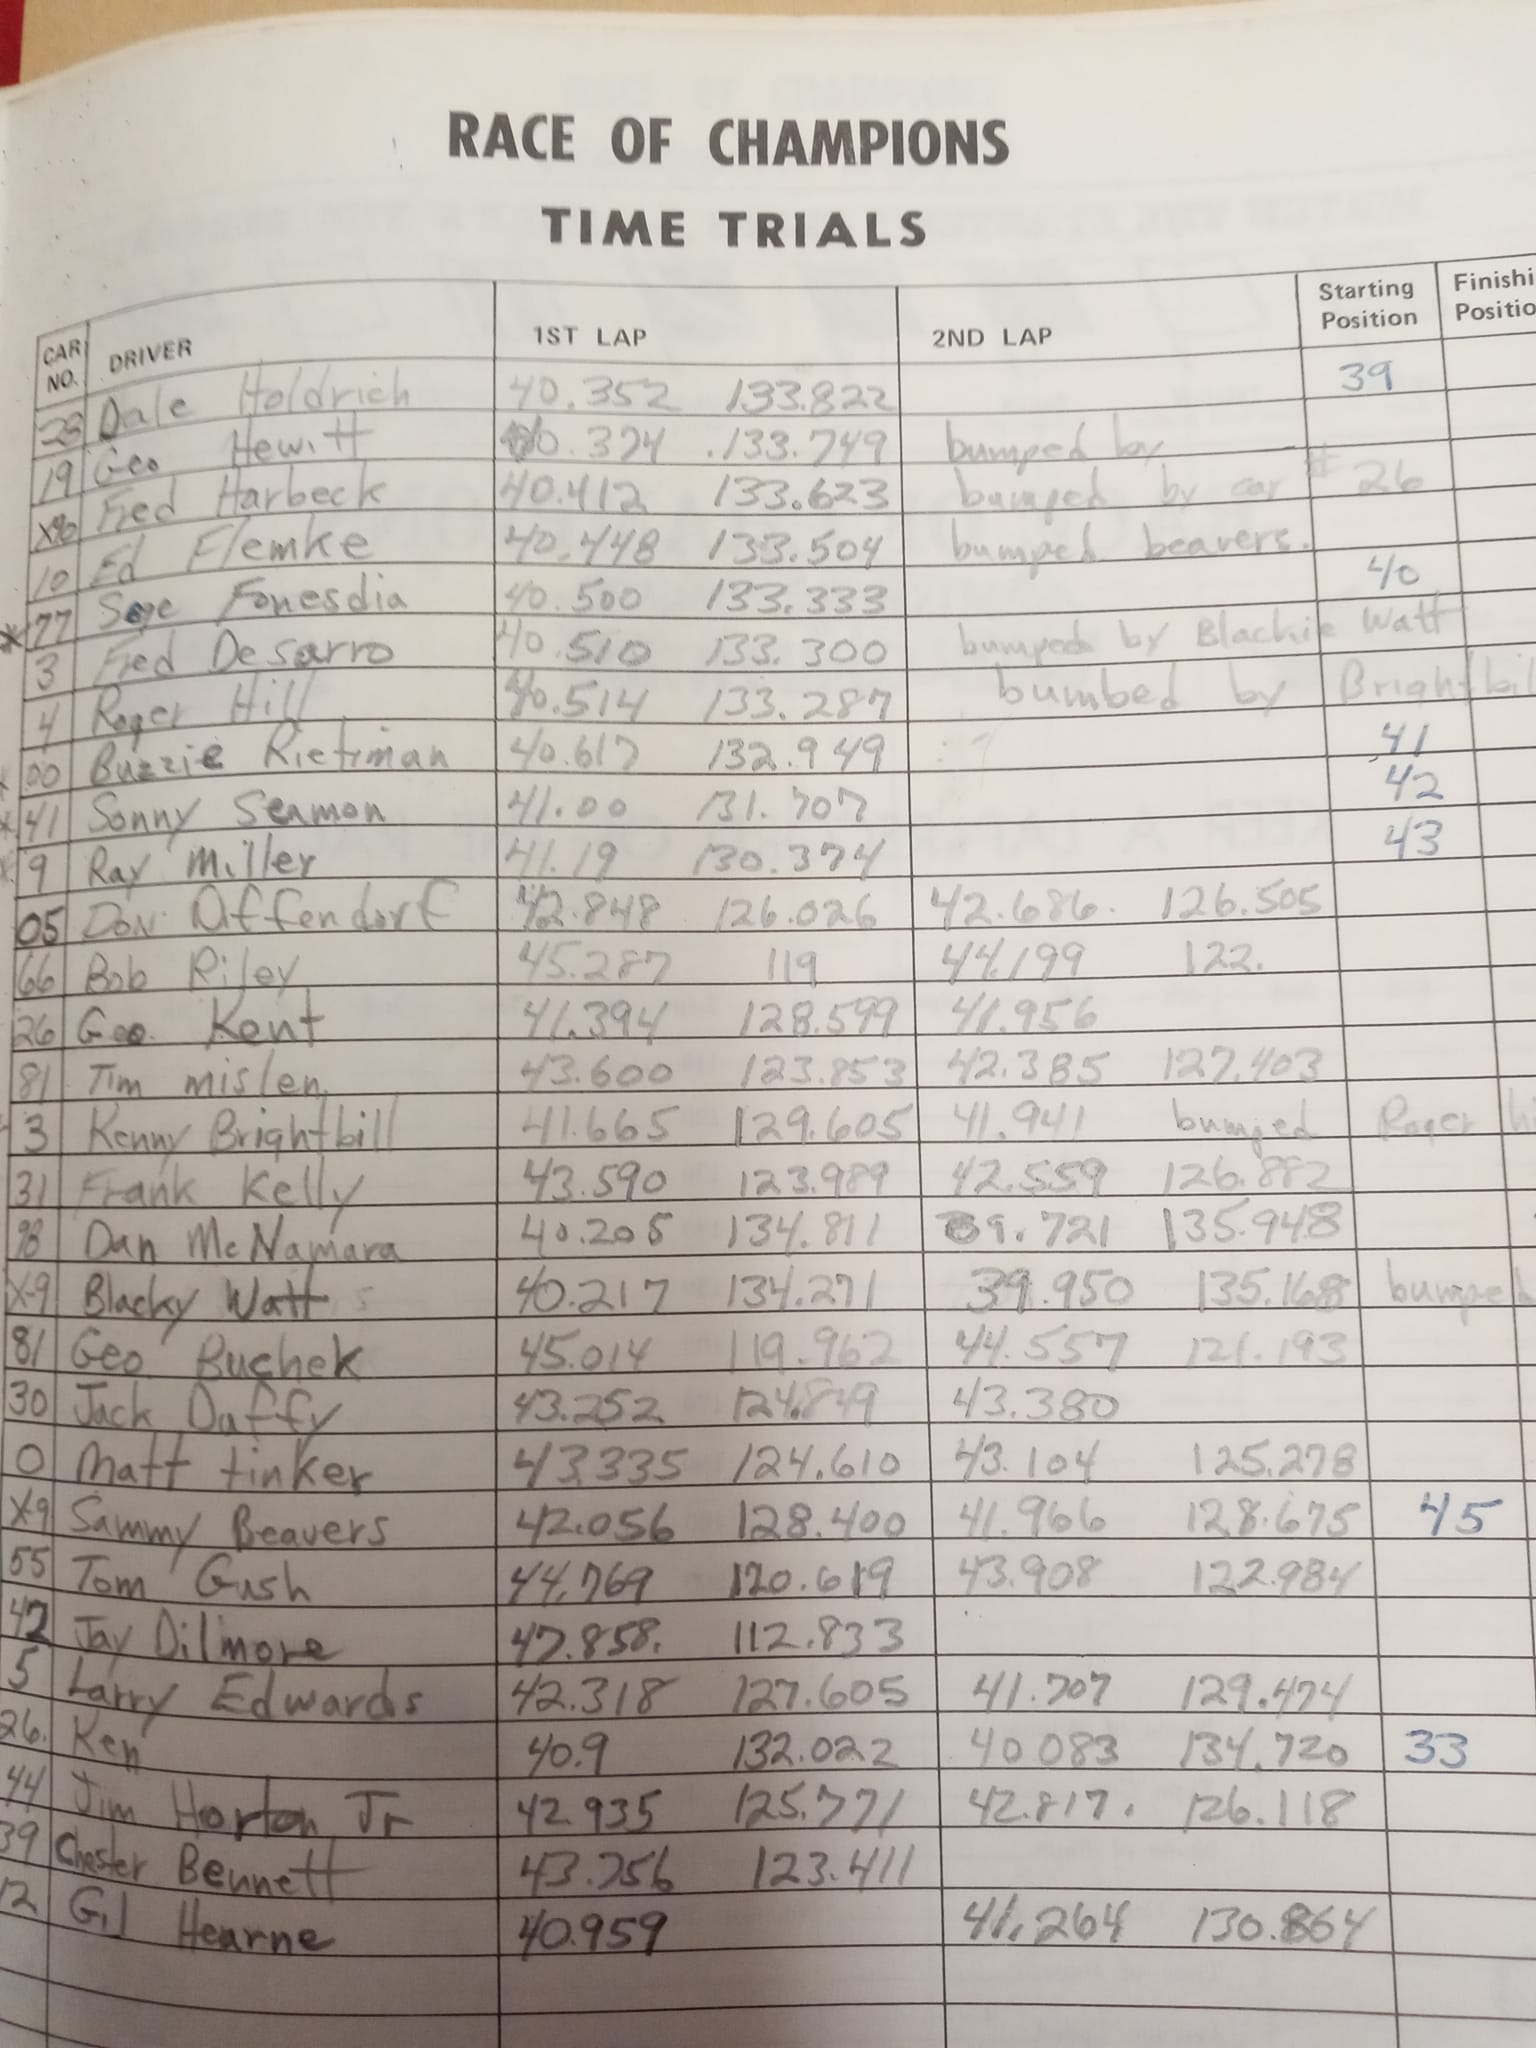 RACE OF CHAMPIONS
TIME TRIALS
CAR NO. DRIVER 1ST LAP 2ND LAP Starting Position Finishi Positio
23 Dale Holdrich 40.352 133.822 39
19 Geo Hewitt 40.374 .133.749 bumped by
X96 Fred Harbeck 40.412 133.623 bumped by car # 26
10 Ed Flemke 40.448 133.504 bumped beavers.
*77 Fonesdia 40.500 133.333 40
3 Fred Desarro 40.510 133.300 bumped by Blackie Watt
4 Roger Hill 40.514 133.287 bumbed by Brightbil
*00 Buzzie Rietiman 40.617 132.949 41
*41 Sonny Seamon 41.00 131.707 42
9 Ray Miller 41.19 130.374 43
05 Don Offendorf 42.848 126.026 42.686. 126.505
66 Bob Riley 45.287 119 44.199 122.
26 Geo. Kent 41.394 128.599 41.956
81 Tim mislen 43.600 123.853 42.385 127.403
3 Kenny Brightbill 41.665 129.605 41.941 bumped Roger hi
31 Frank Kelly 43.590 123.989 42.559 126.882
98 Dan McNamara 40.205 134.811 39.721 135.948
X-9 Blacky Watt 40.217 134.271 39.950 135.168 bumped
81 Geo Buchek 45.014 119.962 44.557 121.193
30 Jack Daffy 43.252 124.849 43.380
0 Matt tinker 43.335 124.610 43.104 125.278
X9 Sammy Beavers 42.056 128.400 41.966 128.675 45
55 Tom Gush 44.769 120.619 43.908 122.984
42 Jay Dilmore 47.858. 112.833
5 Larry Edwards 42.318 127.605 41.707 129.474
26. Ken 40.9 132.022 40.083 134.720 33
44 Jim Horton Jr 42.935 125.771 42.817. 126.118
39 Chester Bennett 43.756 123.411
12 Gil Hearne 40.959 41.264 130.864